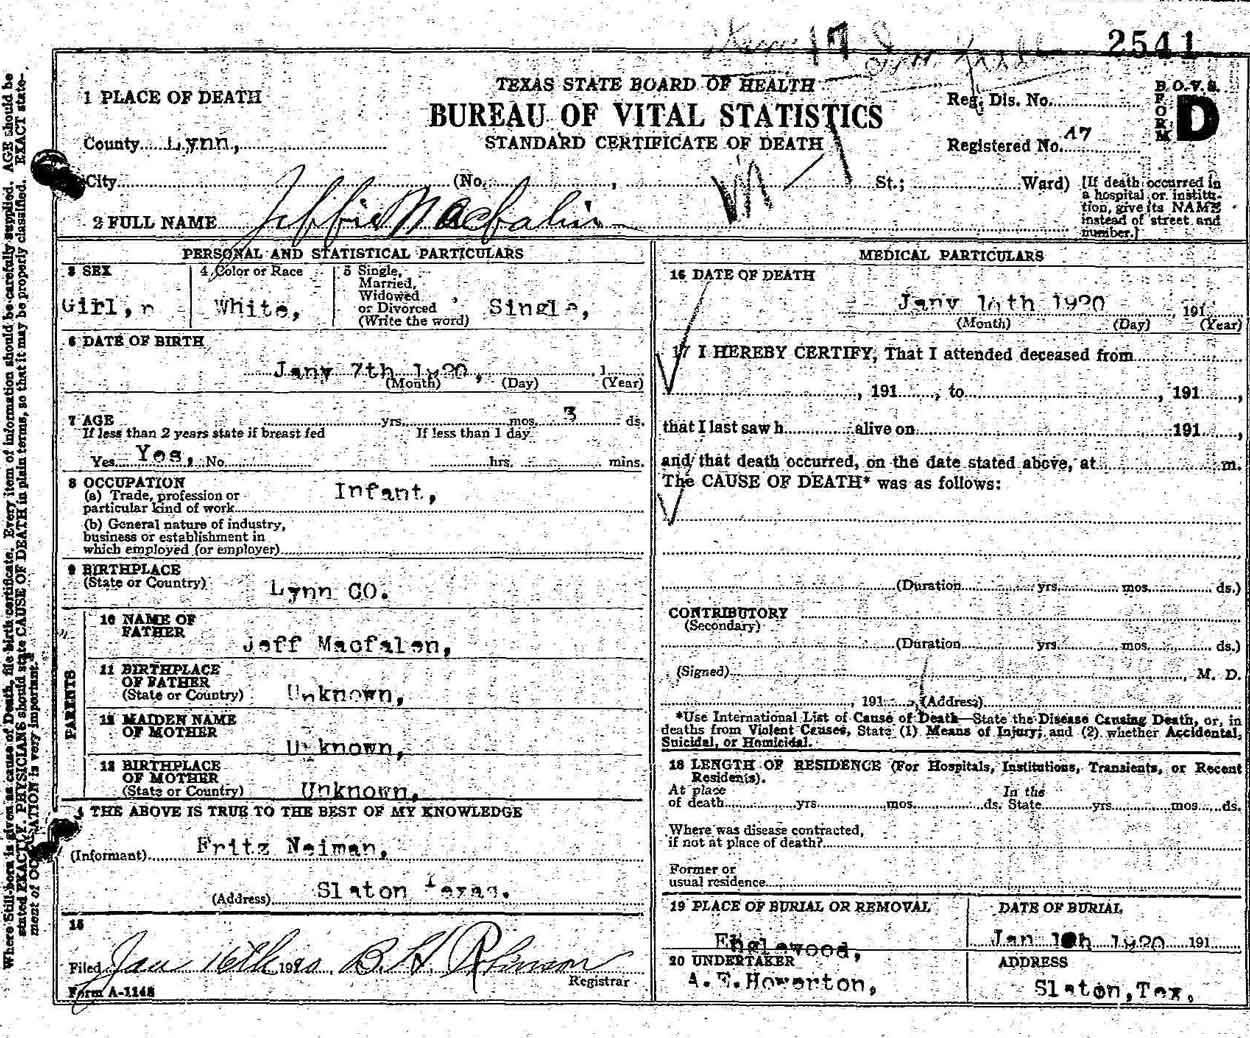 2541
TEXAS STATE BOARD OF HEALTH
BUREAU OF VITAL STATISTICS
STANDARD CERTIFICATE OF DEATH
B.O.V.S.
FORM D
Reg. Dis. No.
Registered No. 17
1 PLACE OF DEATH
County Lynn,
City (No. , St.; Ward)
[If death occurred in
a hospital or institu-
tion, give its NAME
instead of street and
number.]
2 FULL NAME Jeffie Macfalin
PERSONAL AND STATISTICAL PARTICULARS
3 SEX
Girl,
4 Color or Race
White,
5 Single,
Married,
Widowed
or Divorced
(Write the word)
Single,
6 DATE OF BIRTH
Jany 7th 1920, 1
(Month) (Day) (Year)
7 AGE yrs. mos. 3 ds.
If less than 2 years state if breast fed If less than 1 day
Yes Yes, No hrs. mins.
8 OCCUPATION
(a) Trade, profession or
particular kind of work Infant,
(b) General nature of industry,
business or establishment in
which employed (or employer)
9 BIRTHPLACE
(State or Country) Lynn CO.
PARENTS
10 NAME OF
FATHER Jeff Macfalen,
11 BIRTHPLACE
OF FATHER
(State or Country) Unknown,
12 MAIDEN NAME
OF MOTHER Unknown,
13 BIRTHPLACE
OF MOTHER
(State or Country) Unknown,
THE ABOVE IS TRUE TO THE BEST OF MY KNOWLEDGE
(Informant) Fritz Neiman,
(Address) Slaton Texas.
15
Filed Jan 16th 1920 B. H. Robinson
Registrar
Form A-1148
MEDICAL PARTICULARS
16 DATE OF DEATH
Jany 10th 1920 , 191
(Month) (Day) (Year)
17 I HEREBY CERTIFY, That I attended deceased from
, 191 , to , 191 ,
that I last saw h alive on 191 ,
and that death occurred, on the date stated above, at m.
The CAUSE OF DEATH* was as follows:
(Duration yrs. mos. ds.)
CONTRIBUTORY
(Secondary)
(Duration yrs. mos. ds.)
(Signed) , M. D.
, 191 , (Address)
*Use International List of Cause of Death—State the Disease Causing Death, or, in
deaths from Violent Causes, State (1) Means of Injury; and (2) whether Accidental,
Suicidal, or Homicidal.
18 LENGTH OF RESIDENCE (For Hospitals, Institutions, Transients, or Recent
Residents).
At place In the
of death yrs. mos. ds. State yrs. mos. ds.
Where was disease contracted,
if not at place of death?
Former or
usual residence
19 PLACE OF BURIAL OR REMOVAL
Englewood,
DATE OF BURIAL
Jan 10h 1920 191
20 UNDERTAKER
A.E.Howerton,
ADDRESS
Slaton,Tex.
Where Still-born is given as cause of Death, file birth certificate. Every item of information should be carefully supplied. AGE should be
stated EXACTLY. PHYSICIANS should state CAUSE OF DEATH in plain terms, so that it may be properly classified. EXACT state-
ment of OCCUPATION is very important.